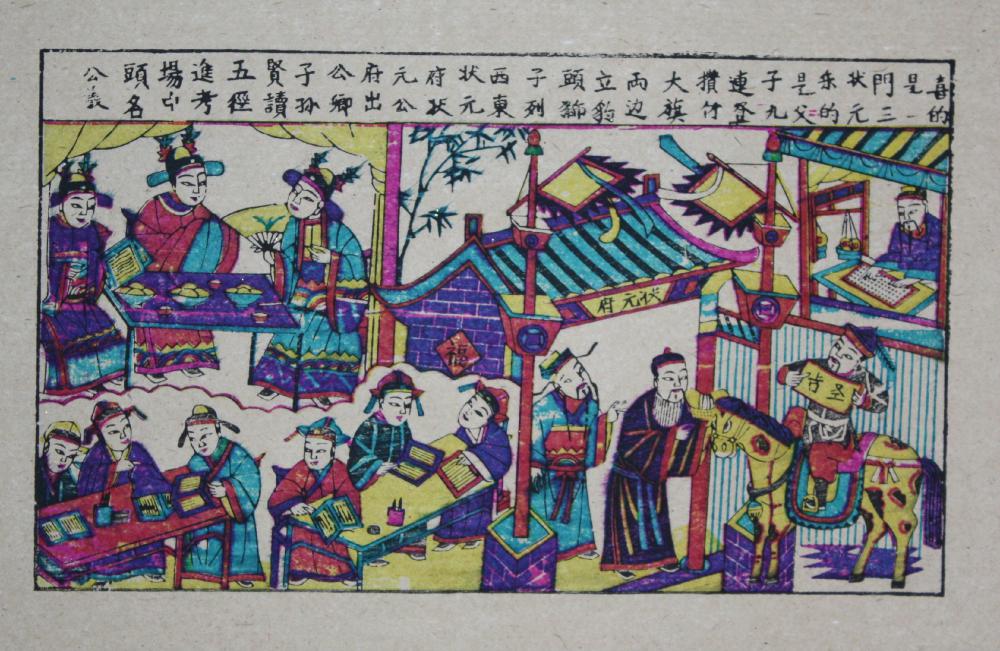 喜的
是一
門三
状元
乐的
是父
子九
連登
攢付
大旗
両边
立豹
頭獅
子列
西東
状元
府状
元公
府出
公卿
子孙
賢讀
五徑
進考
場中
頭名
公義
状元府
福
圣旨